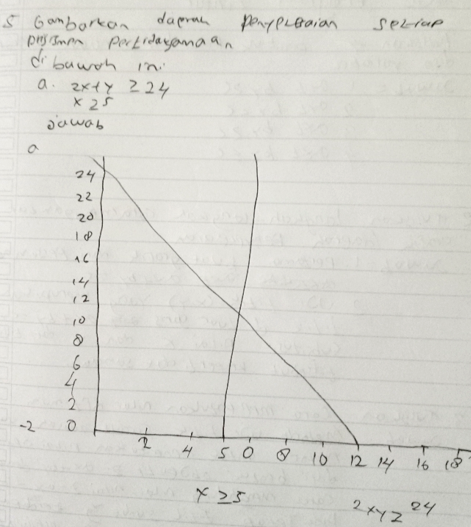 5 Gambarkan daerah penyelesaian setiap
sistem pertidaksamaan
dibawah ini
a. 2x+y ≥ 24
x ≥ 5
Jawab
a
24
22
20
18
16
14
12
10
8
6
4
2
-2 0
2 4 5 6 8 10 12 14 16 18
x ≥ 5 2xy ≥ 24